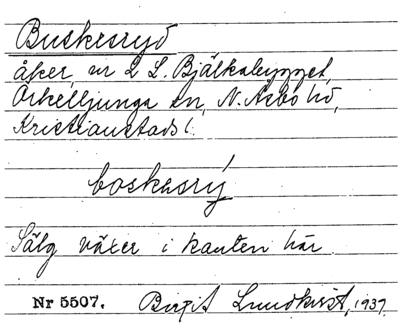 Buskesryd
åker, nr 2 L. Bjälkabygget,
Örkelljunga sn, N. Åsbo hd,
Kristianstads l.
boskasrý
Sälg växer i kanten här
Nr 5507. Birgit Lundkvist, 1937.